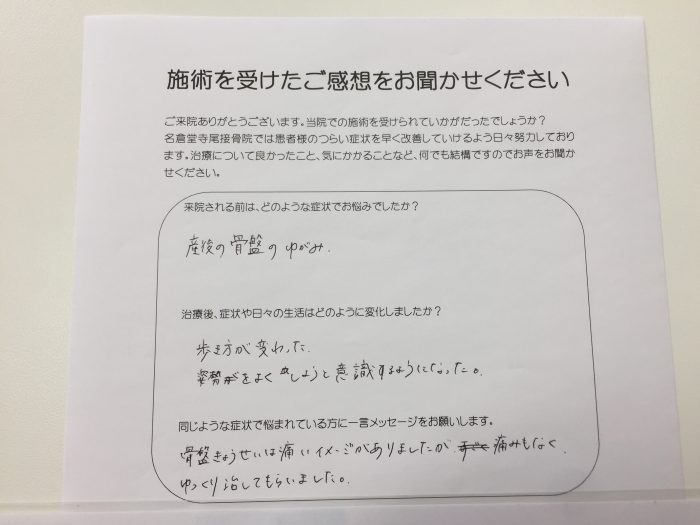 施術を受けたご感想をお聞かせください
ご来院ありがとうございます。当院での施術を受けられていかがだったでしょうか？
名倉堂寺尾接骨院では患者様のつらい症状を早く改善していけるよう日々努力しており
ます。治療について良かったこと、気にかかることなど、何でも結構ですのでお声をお聞か
せください。
来院される前は、どのような症状でお悩みでしたか？
産後の骨盤のゆがみ.
治療後、症状や日々の生活はどのように変化しましたか？
歩き方が変わった.
姿勢をよくしようと意識するようになった。
同じような症状で悩まれている方に一言メッセージをお願いします。
骨盤きょうせいは痛いイメージがありましたが痛みもなく
ゆっくり治してもらいました。